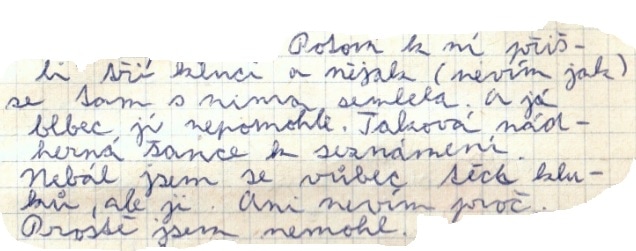 Potom k ní přiš-
li tři kluci a nějak (nevím jak)
se tam s nima semlela. A já
blbec jí nepomohl. Taková nád-
herná šance k seznámení.
Nebál jsem se vůbec těch klu-
ků, ale jí. Ani nevím proč.
Prostě jsem nemohl.